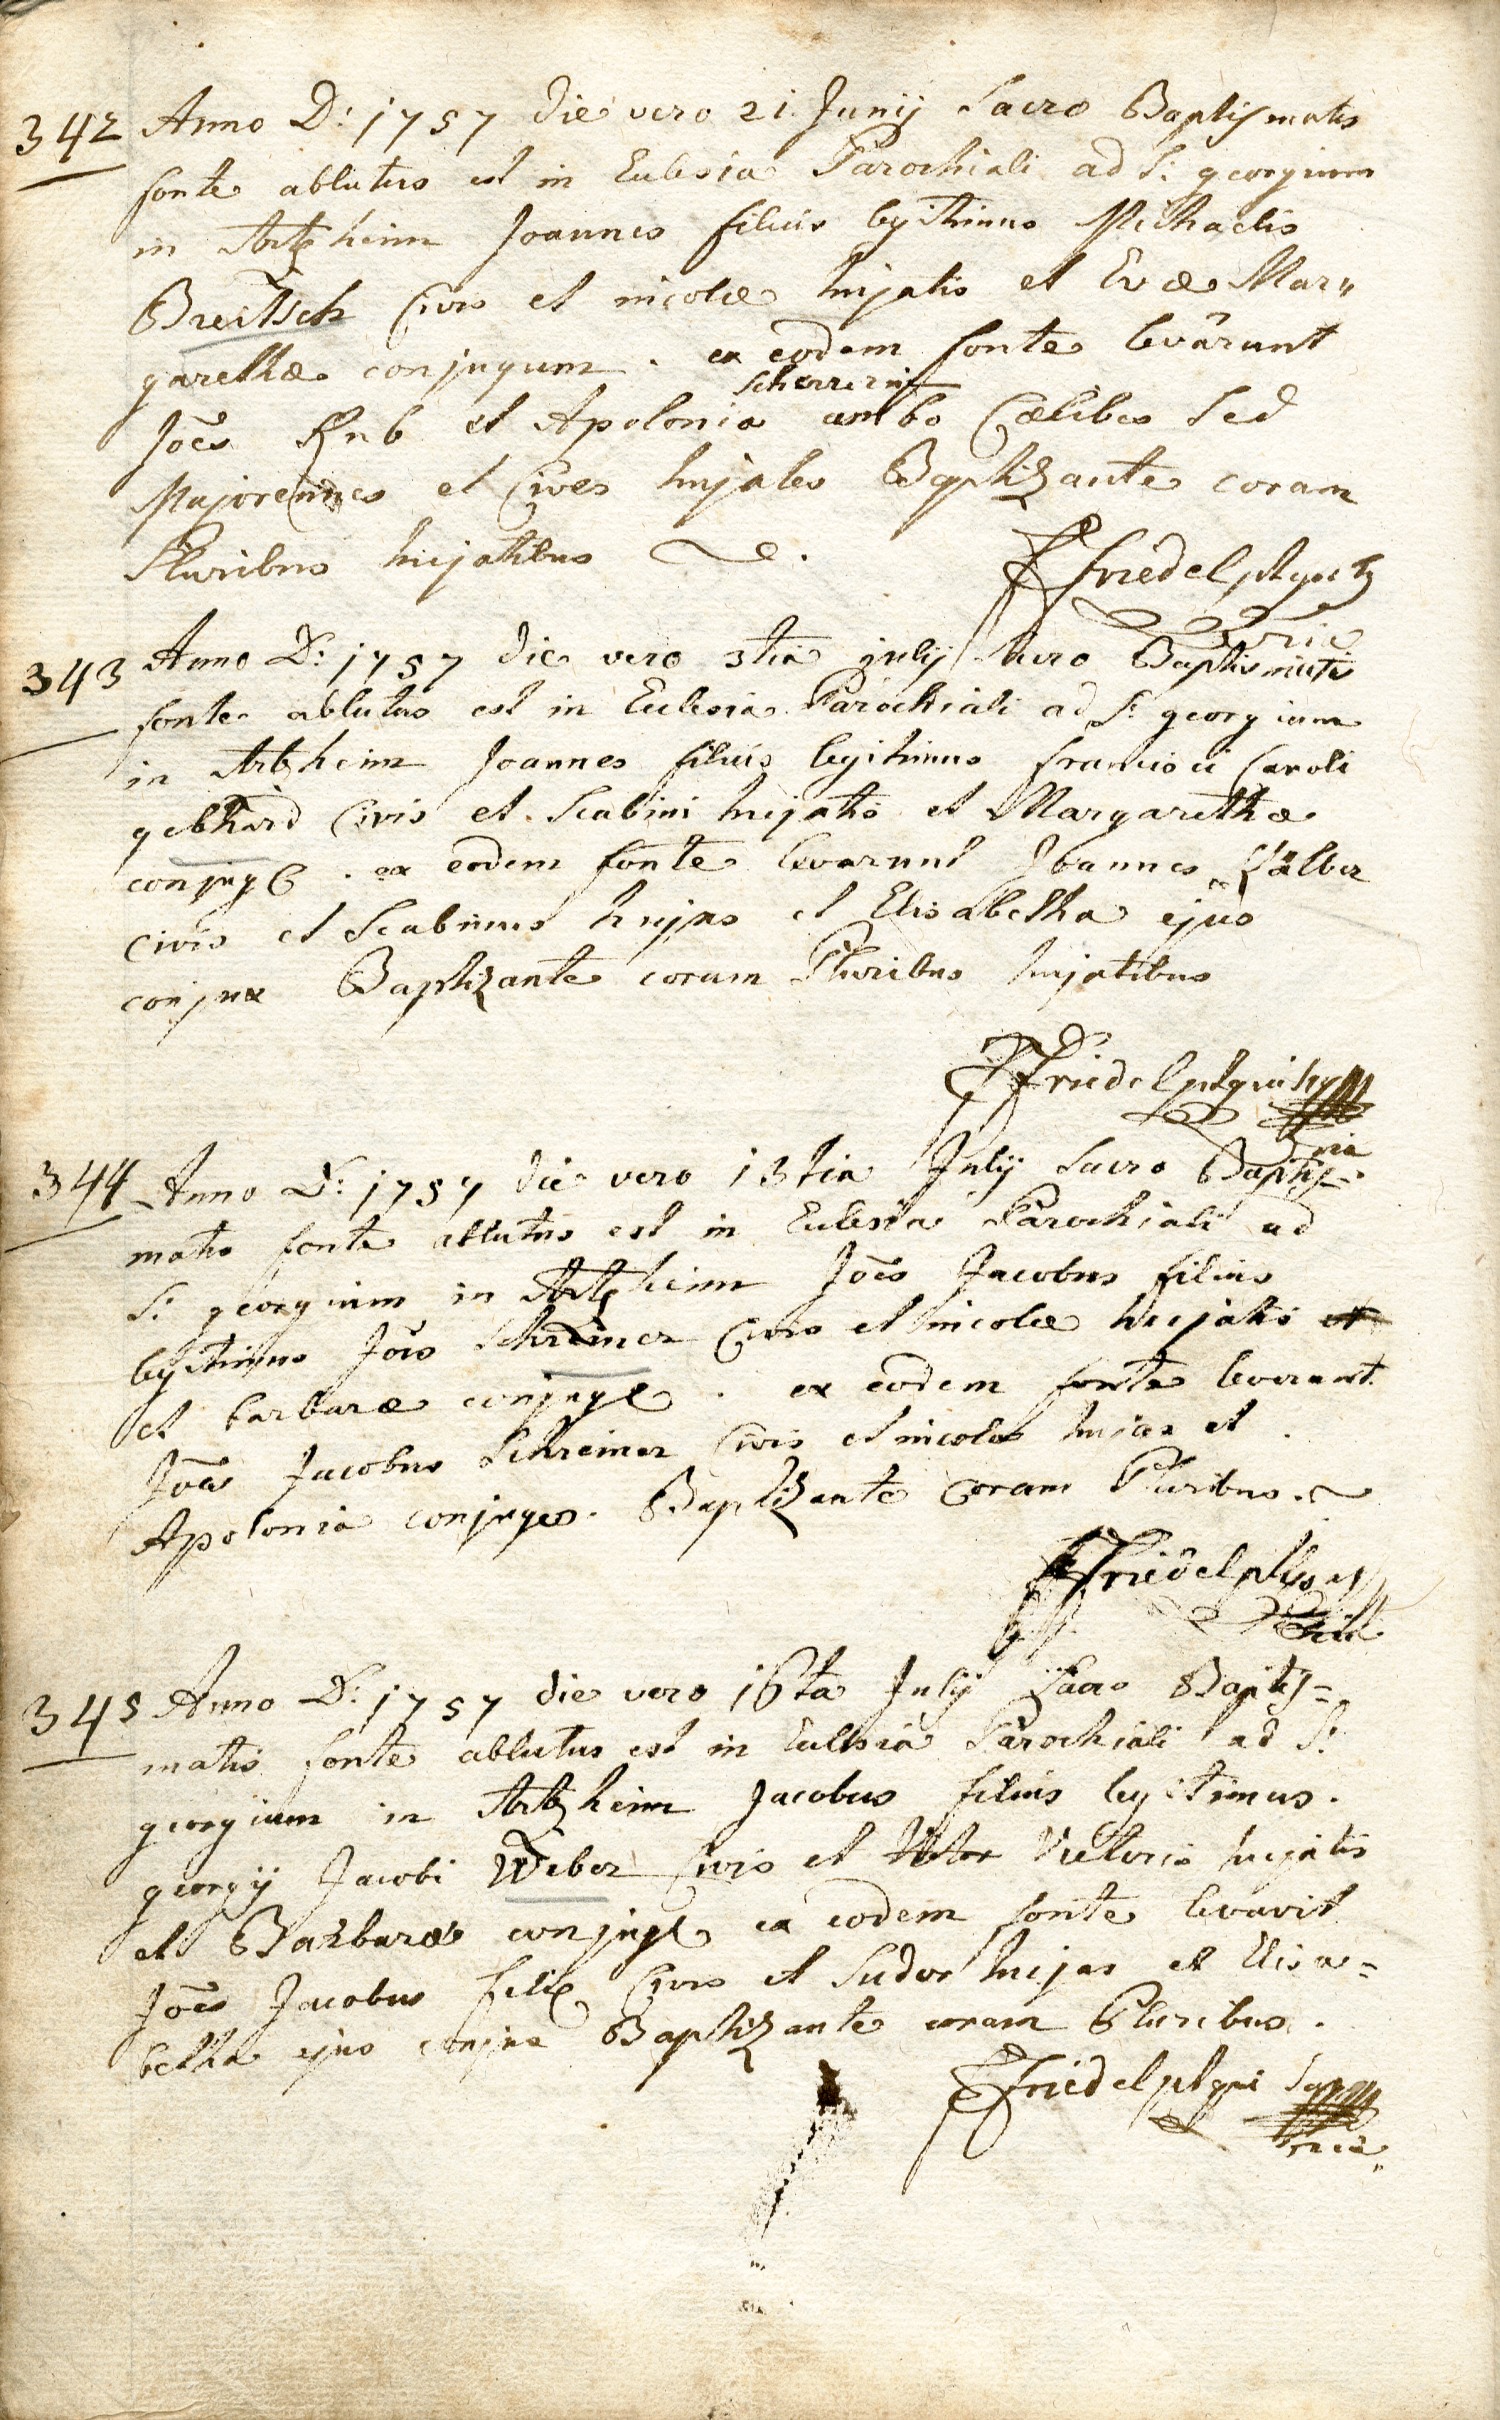 342 Anno D: 1757 die vero 21. Junij Sacro Baptismatis
fonte ablutus est in Eclesia Parochiali ad S: georgium
in Artzheim Joannes filius legithimus Michaelis
Breitsch Civis et incolæ hujatis et Evæ Mar„
garethæ conjugum. ex eodem fonte levârunt
Scherrerin
Jōēs Kub et Apolonia ambo Cælibes Sed
Majorennes et Cives hujates Baptizante coram
Pluribus hujatibus
Friedel
343 Anno D: 1757 die vero 3tia julij Sacro Baptismatis
fonte ablutus est in Eclesia Parochiali ad S: georgium
in Artzheim Joannes filius legitimus francisci Caroli
gebhard Civis et Scabini hujatis et Margarethæ
conjug. ex eodem fonte levarunt Joannes
civis et Scabinus hujas et Elisabetha ejus
conjux Baptizante coram Pluribus hujatibus
Friedel
344 Anno D: 1757 die vero 13tia Julij Sacro Baptis=
matis fonte ablutus est in Eclesia Parochiali ad
S: georgium in Artzheim Jōēs Jacobus filius
legitimus Jōīs Schreiner Civis et incolæ hujatis et
et barbaræ conjug. ex eodem fonte levarunt
Jōēs Jacobus Schreiner Civis et incola hujas et
Apolonia conjuges. Baptizante Coram Pluribus.
Friedel
345 Anno D: 1757 die vero 16ta Julij Sacro Baptis=
matis fonte ablutus est in Eclesia Parochiali ad S:
georgium in Artzheim Jacobus filius legitimus.
georgij Jacobi Weber Civis et Vietoris hujatis
et Barbaræ conjug ex eodem fonte levavit
Jōēs Jacobus felix Civis et Sudor hujas et Elisa=
betha ejus conjux Baptizante coram Pluribus.
Friedel